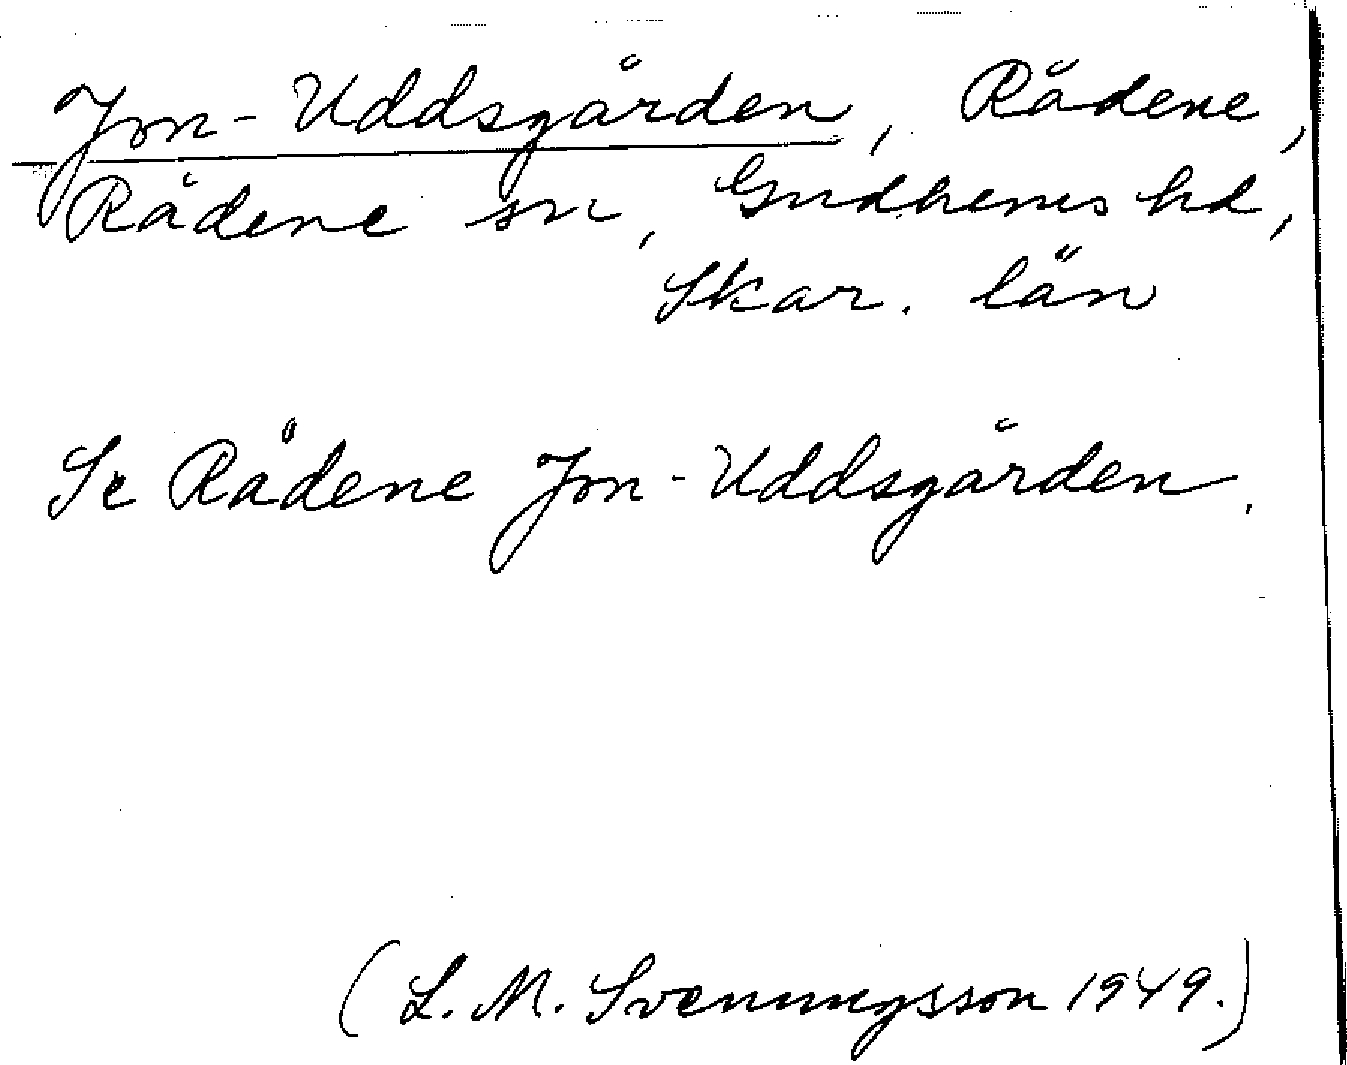 Jon-Uddsgården, Rådene,
Rådene sn, Gudhems hd,
Skar. län
Se Rådene Jon-Uddsgården.
(L. M. Svenungsson 1949.)